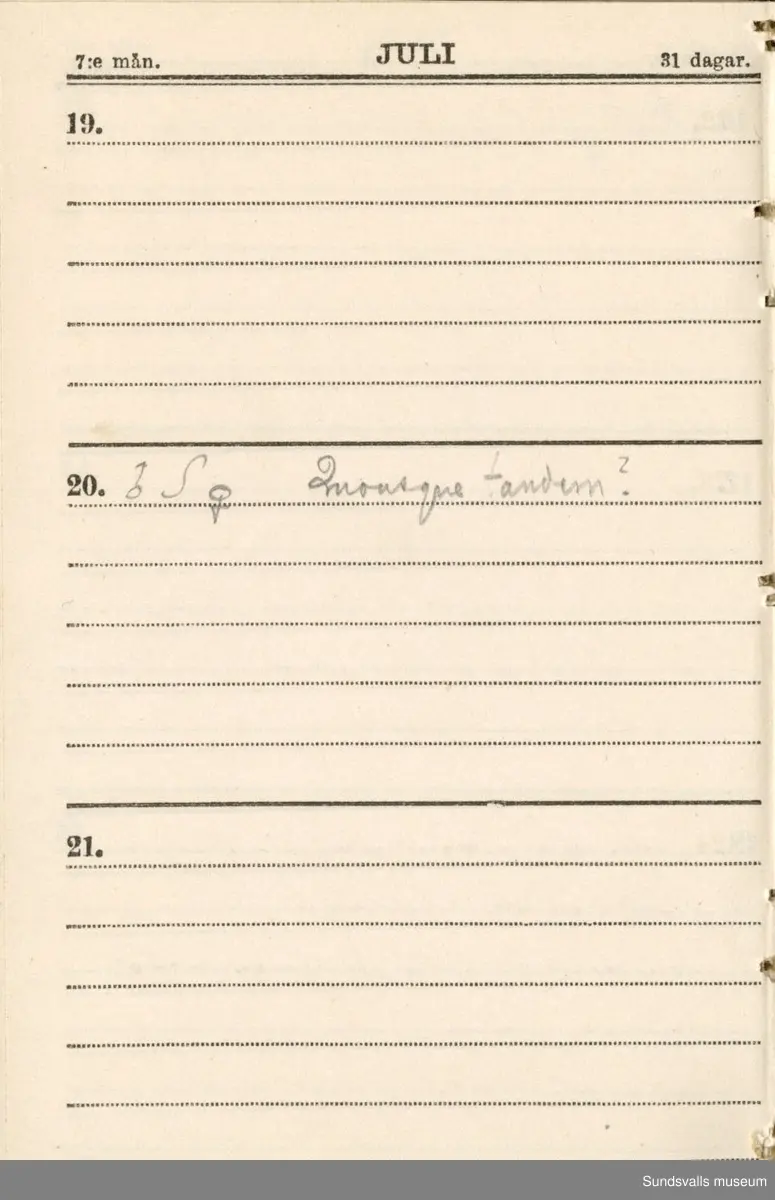 7:e mån. JULI 31 dagar.
19.
20. ♂ S ♀ Quousque tandem?
21.
Sundsvalls museum